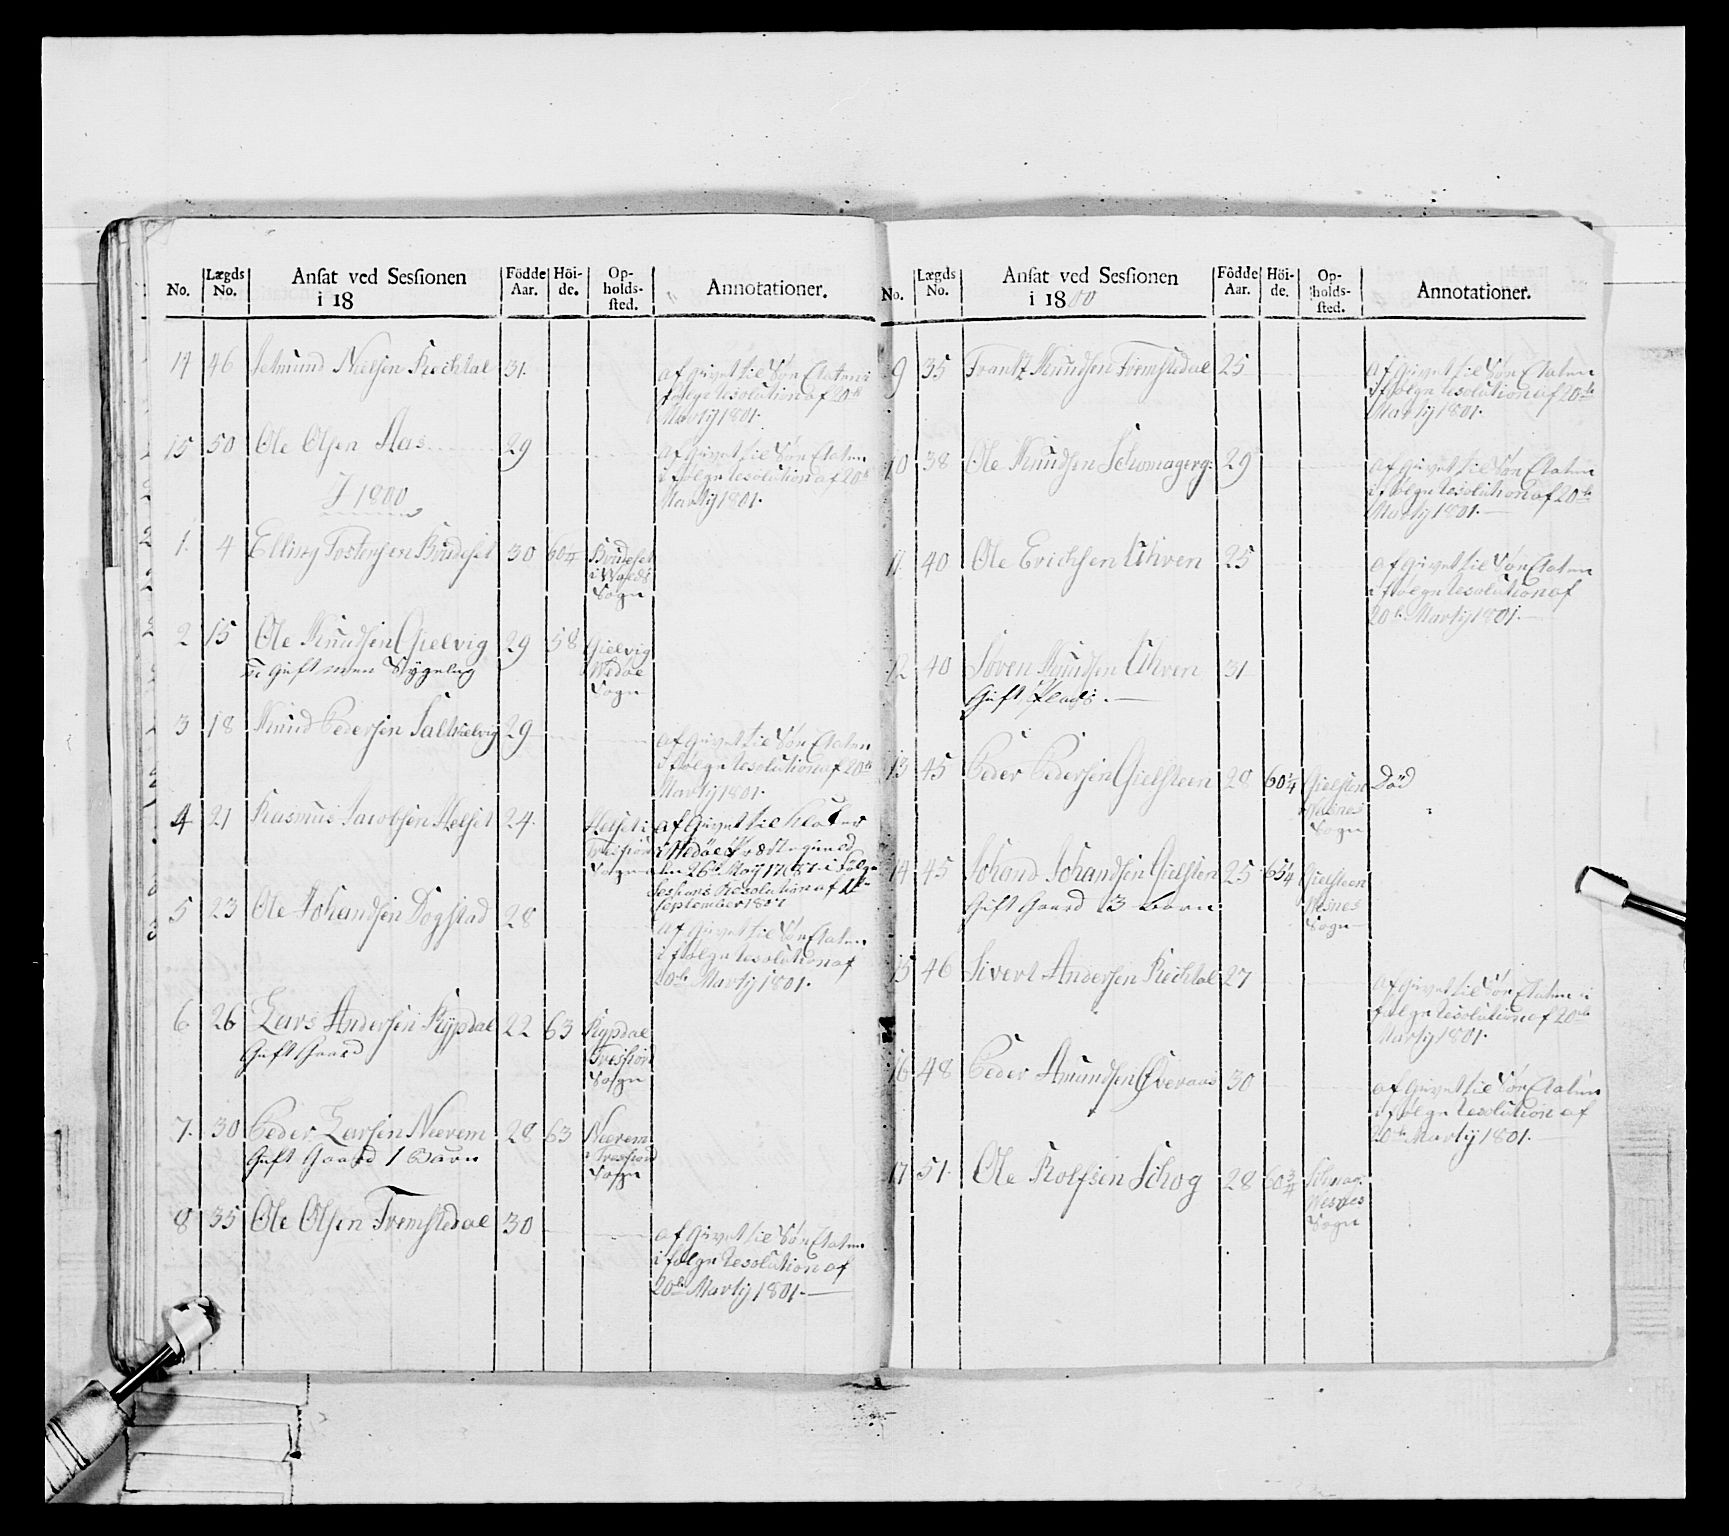 No. Lægds No. Ansat ved Sessionen i 18 Födde Aar. Höi-de. Op-holds-sted. Annotationer.
14 46 Jetmund Nielsen Rechtal 31. afgivet til Søe Etaten i
følge Resolution af 20de
Martij 1801.
15 50 Ole Olsen Aas 29 afgivet til Søe Etaten
i følge Resolution af 20de
Martij 1801.
I 1800
1. 4 Elling Tostensen Boudeset 30 60¼ Boudeset
i Wolds
Sogn
2 15 Ole Knudsen Gielvig 29 58 Gielvig
Gift men Sygelig Wedøe
Sogn
3 18 Knud Pedersen Saltkielvig 29 afgivet til Søe Etaten
i følge Resolution af 20de
Martij 1801.
4 21 Rasmus Jacobsen Helset 24. Helset i
Tresfiord
Sogn
afgivet til Klocker
i Wedøe Præstegield
den 26de Maij 1787 i følge
Sessions Resolution af 1te
September 1801
5 23 Ole Johandsen Dogstad 28 afgivet til Søe Etaten
i følge Resolution af
20de Martij 1801.
6 26 Lars Andersen Rypdal 22 63 Rypdal
Gift Gaard Tresfiord
Sogn
7. 30 Peder Larsen Neerem 28 63 Neerem
Gift Gaard 1 Barn i Tresfiord
Sogn
8 35 Ole Olsen Fremstedal 30 afgivet til Søe Etaten
i følge Resolution af
20de Martij 1801.
No. Lægds No. Ansat ved Sessionen i 1800 Födde Aar. Höi-de. Op-holds-sted. Annotationer.
9 35 Frantz Knudsen Fremstedal 25 afgivet til Søe Etaten
i følge Resolution af 20de
Martij 1801.
10 38 Ole Knudsen Schomagerg: 29 afgivet til Søe Etaten
i følge Resolution af 20de
Martij 1801.
11. 40 Ole Erichsen Uhven 25 afgivet til Søe Etaten
i følge Resolution af
20de Martij 1801.
12 40 Søren Knudsen Uhven 31
Gift Plads.
13 45 Peder Pedersen Gielsteen 28 60¼ Gielsten Död
Wesnes
Sogn
14 45 Johand Johandsen Gielsten 25 65¼ Gielsteen
Gift Gaard 3 Barn Wesnes
Sogn
15 46 Sivert Andersen Rechtal 27 afgivet til Søe Etaten i
følge Resolution af 20de
Martij 1801.
16 48 Peder Amundsen Øveraas 30 afgivet til Søe Etaten
i følge Resolution af
20de Martij 1801.
17 51. Ole Rolfsen Schog 28 60¾
Wesnes
Sogn